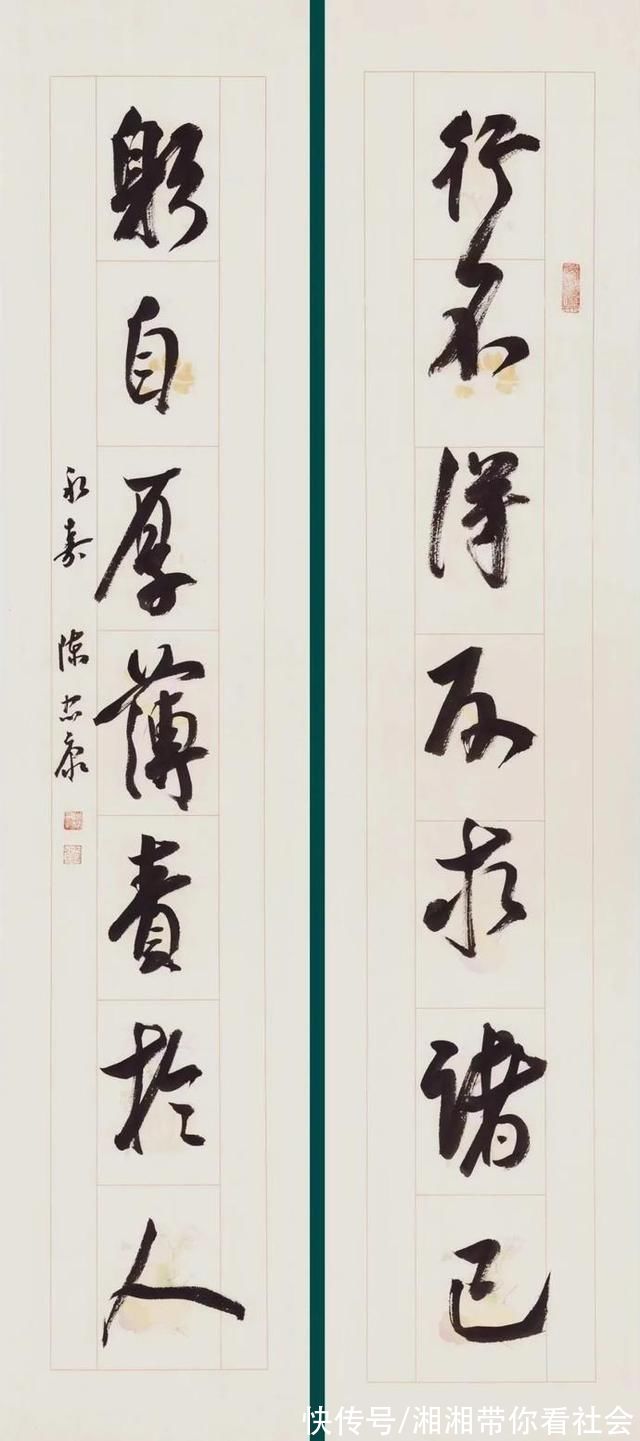 行不得反求诸己
躬自厚薄責於人
永嘉 陳忠康
快传号/湘湘带你看社会